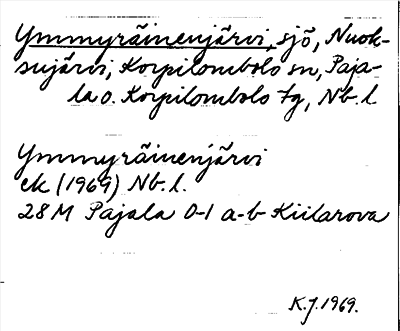 Ymmyräinenjärvi, sjö, Nuok-
sujärvi, Korpilombolo sn, Paja-
la o. Korpilombolo tg, Nb.l.
Ymmyräinenjärvi
ek (1969) Nb.l.
28M Pajala 0-1 a-b Kiilarova
K.J. 1969.